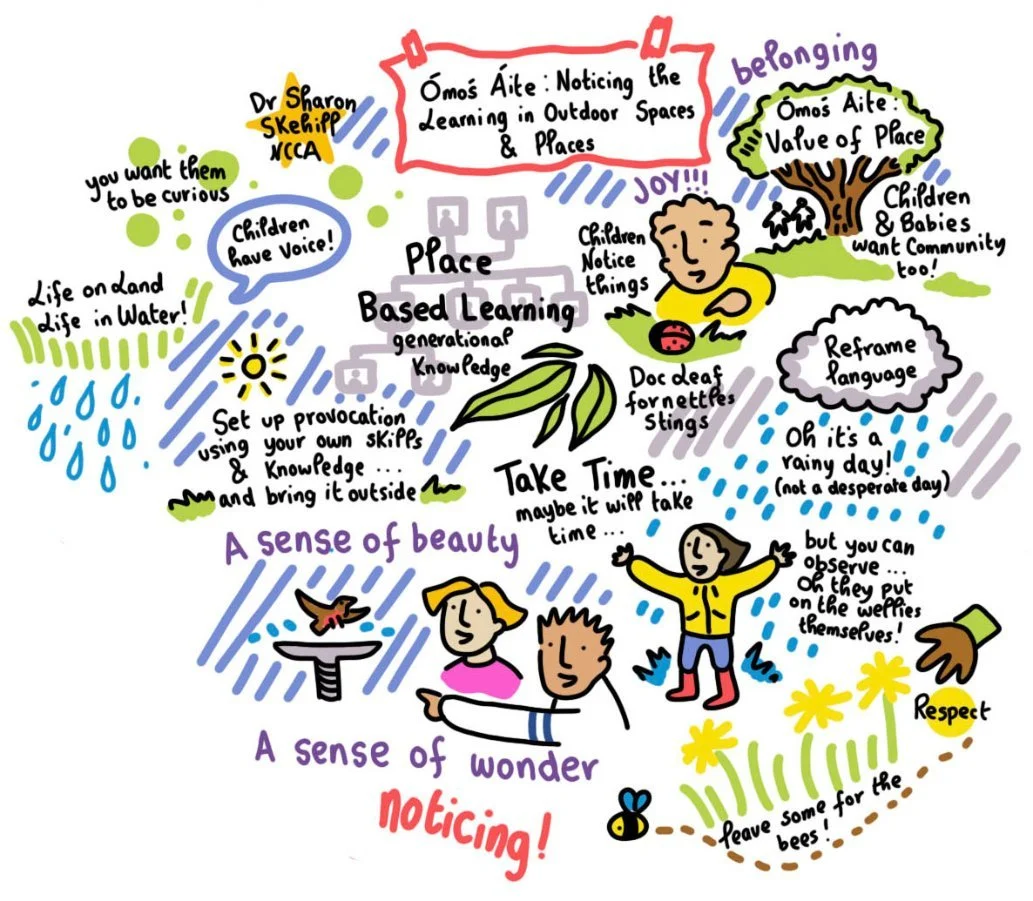 Ómós Áite: Noticing the
Learning in Outdoor Spaces
& Places
Dr Sharon
Skehill
NCCA
belonging
Ómós Áite:
Value of Place
you want them
to be curious
Children
have Voice!
JOY!!!
Children
Notice
things
Children
& Babies
want Community
too!
Life on Land
Life in Water!
Place
Based Learning
generational
Knowledge
Doc Leaf
for nettles
Stings
Reframe
language
Set up provocation
using your own skills
& Knowledge ...
and bring it outside
Take Time...
maybe it will take
time ...
Oh it's a
rainy day!
(not a desperate day)
A sense of beauty
but you can
observe ...
Oh they put
on the wellies
themselves!
Respect
A sense of wonder
noticing!
leave some for the
bees!